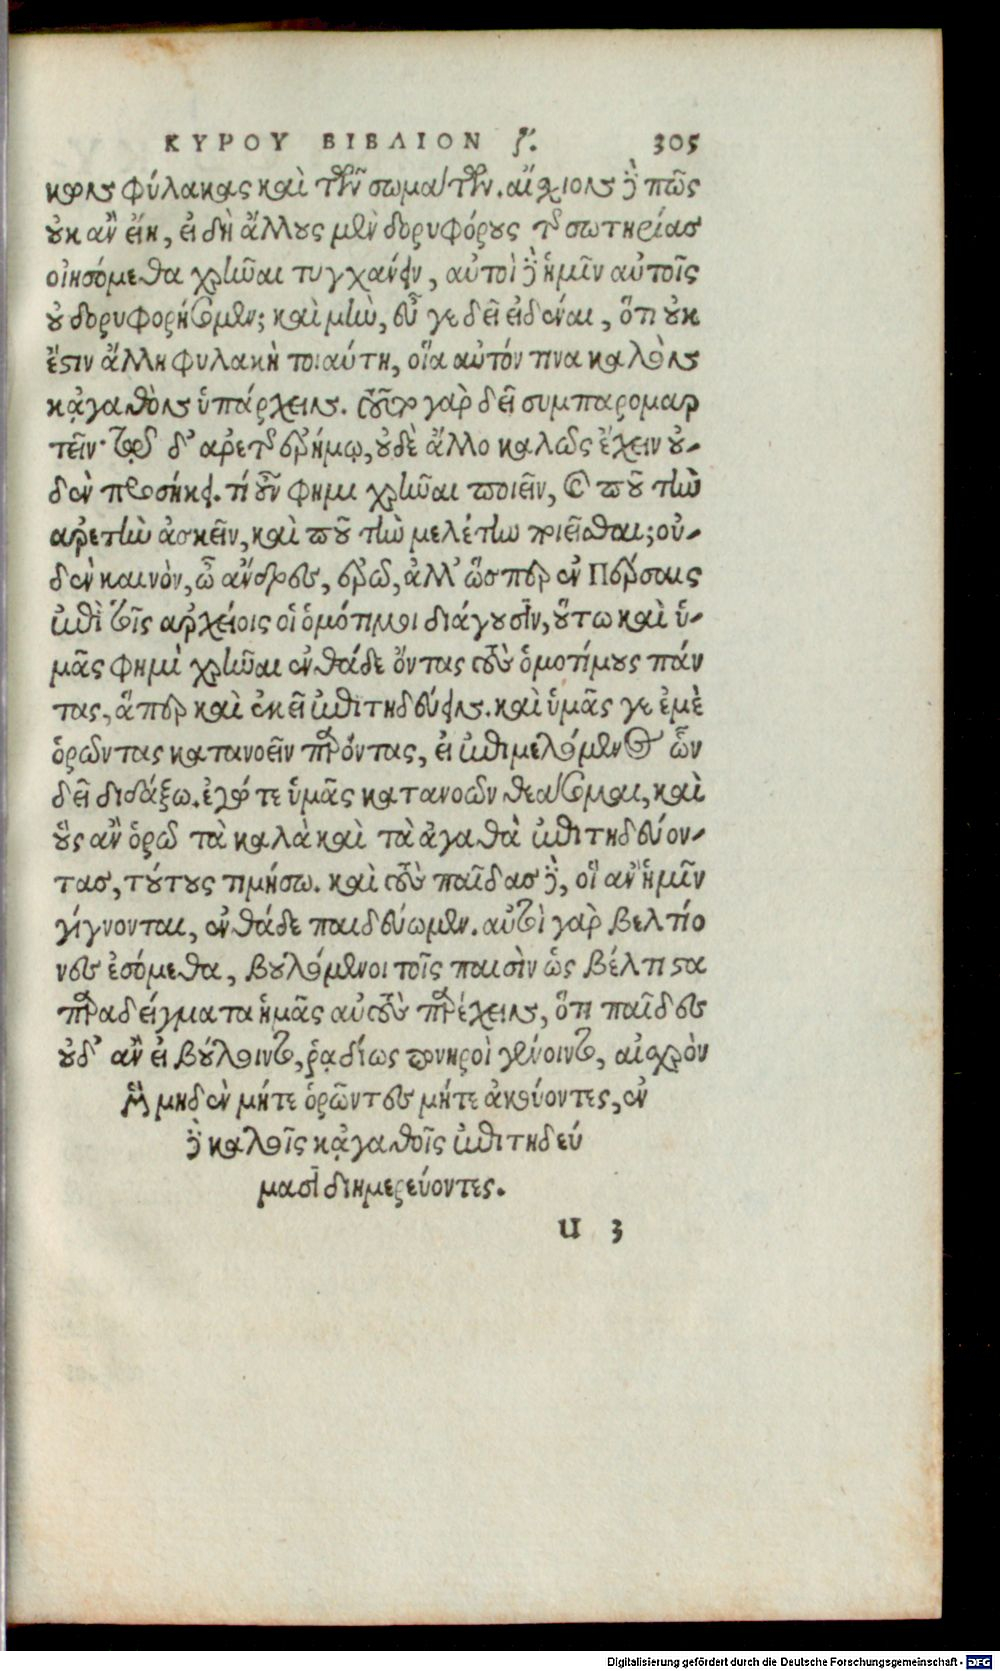 ΚΥΡΟΥ ΒΙΒΛΙΟΝ ζ'. 305
κοὺς φύλακας καὶ τῶν σωμάτων. αἴσχιον δὲ πῶς
οὐκ ἂν εἴη, εἰ δὴ ἄλλους μὲν δορυφόρους τῆς σωτηρίας
οἰησόμεθα χρῆναι τυγχάνειν, αὐτοὶ δὲ ἡμῖν αὐτοῖς
οὐ δορυφορήσομεν; καὶ μὴν, εὖ γε δεῖ εἰδέναι, ὅτι οὐκ
ἔστιν ἄλλη φυλακὴ τοιαύτη, οἵα αὐτόν τινα καλὸν
κᾀγαθὸν ὑπάρχειν. τοῦτο γὰρ δεῖ συμπαρομαρ
τεῖν· τῷ δ' ἀρετῆς ἐρήμῳ, οὐδὲ ἄλλο καλῶς ἔχειν οὐ-
δὲν προσήκει. τί οὖν φημι χρῆναι ποιεῖν, καὶ ποῦ τὴν
ἀρετὴν ἀσκεῖν, καὶ ποῦ τὴν μελέτην ποιεῖσθαι; οὐ-
δὲν καινὸν, ὦ ἄνδρες, ἐρῶ, ἀλλ' ὥσπερ ἐν Πέρσαις
ἐπὶ τοῖς ἀρχείοις οἱ ὁμότιμοι διάγουσιν, οὕτω καὶ ὑ-
μᾶς φημὶ χρῆναι ἐνθάδε ὄντας τοὺς ὁμοτίμους πάν
τας, ἅπερ καὶ ἐκεῖ ἐπιτηδεύειν. καὶ ὑμᾶς γε ἐμὲ
ὁρῶντας κατανοεῖν παρόντας, εἰ ἐπιμελόμενος ὧν
δεῖ διάξω. ἐγώ τε ὑμᾶς κατανοῶν θεάσομαι, καὶ
οὓς ἂν ὁρῶ τὰ καλὰ καὶ τὰ ἀγαθὰ ἐπιτηδεύον-
τας, τούτους τιμήσω. καὶ τοὺς παῖδας δὲ, οἳ ἂν ἡμῖν
γίγνονται, ἐνθάδε παιδεύωμεν. αὐτοὶ γὰρ βελτίο
νες ἐσόμεθα, βουλόμενοι τοῖς παισὶν ὡς βέλτιστα
παραδείγματα ἡμᾶς αὐτοὺς παρέχειν, ὅτι παῖδες
οὐδ' ἂν εἰ βούλοιντο, ῥᾳδίως πονηροὶ γένοιντο, αἰσχρὸν
μὲν μηδὲν μήτε ὁρῶντες μήτε ἀκούοντες, ἐν
δὲ καλοῖς κᾀγαθοῖς ἐπιτηδεύ
μασι διημερεύοντες.
u 3
Digitalisierung gefördert durch die Deutsche Forschungsgemeinschaft - DFG